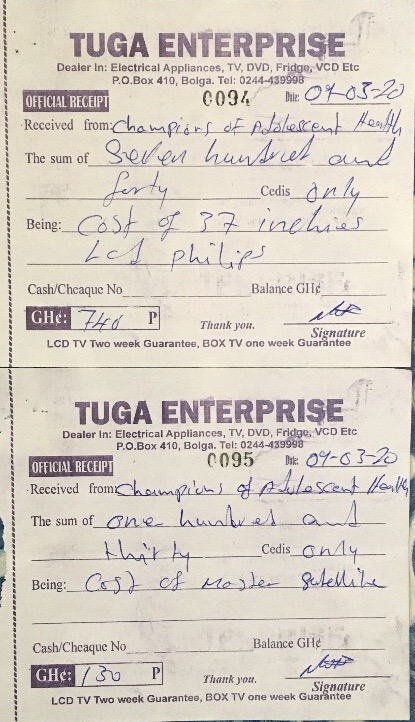 TUGA ENTERPRISE
Dealer In: Electrical Appliances, TV, DVD, Fridge, VCD Etc
P.O.Box 410, Bolga. Tel: 0244-439998
OFFICIAL RECEIPT 0094 Date: 09-03-20
Received from: Champions of Adolescent Health
The sum of Seven hundred and
forty Cedis only
Being: Cost of 37 inchies
LCd philips
Cash/Cheaque No Balance GH¢
GH¢: 740 P Thank you. Signature
LCD TV Two week Guarantee, BOX TV one week Guarantee
TUGA ENTERPRISE
Dealer In: Electrical Appliances, TV, DVD, Fridge, VCD Etc
P.O.Box 410, Bolga. Tel: 0244-439998
OFFICIAL RECEIPT 0095 Date: 09-03-20
Received from: Champions of Adolescent Health
The sum of one hundred and
thirty Cedis only
Being: Cost of Master Satellite
Cash/Cheaque No Balance GH¢
GH¢: 130 P Thank you. Signature
LCD TV Two week Guarantee, BOX TV one week Guarantee